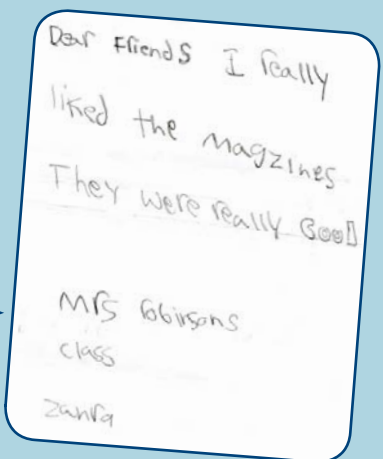 Dear Friends I really
liked the magzines
They were really Good
Mrs robinsons
class
zahra